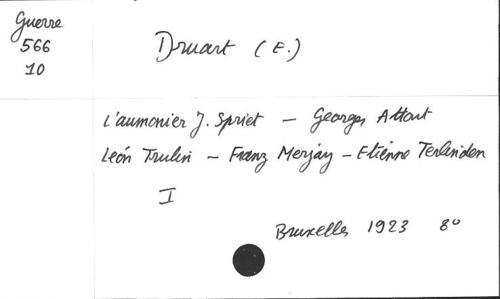 Guerre
566
10
Druart (E.)
L'aumonier J. Spriet — Georges Attout
León Trulin — Franz Merjay — Etienne Terlinden
I
Bruxelles 1923 8º